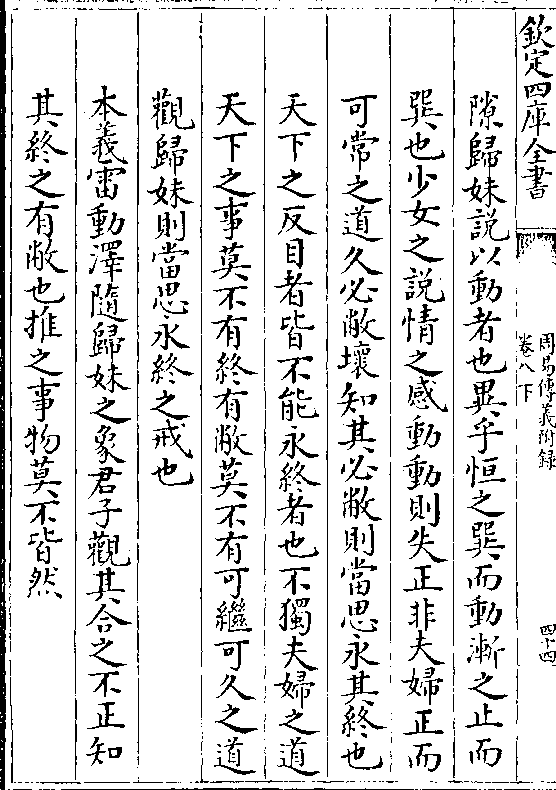 欽定四庫全書
周易傳義附録
卷八下
四十四
隙歸妹説以動者也異乎恒之巽而動漸之止而
巽也少女之説情之感動動則失正非夫婦正而
可常之道久必敝壞知其必敝則當思永其終也
天下之反目者皆不能永終者也不獨夫婦之道
天下之事莫不有終有敝莫不有可繼可久之道
觀歸妹則當思永終之戒也
本義雷動澤隨歸妹之象君子觀其合之不正知
其終之有敝也推之事物莫不皆然